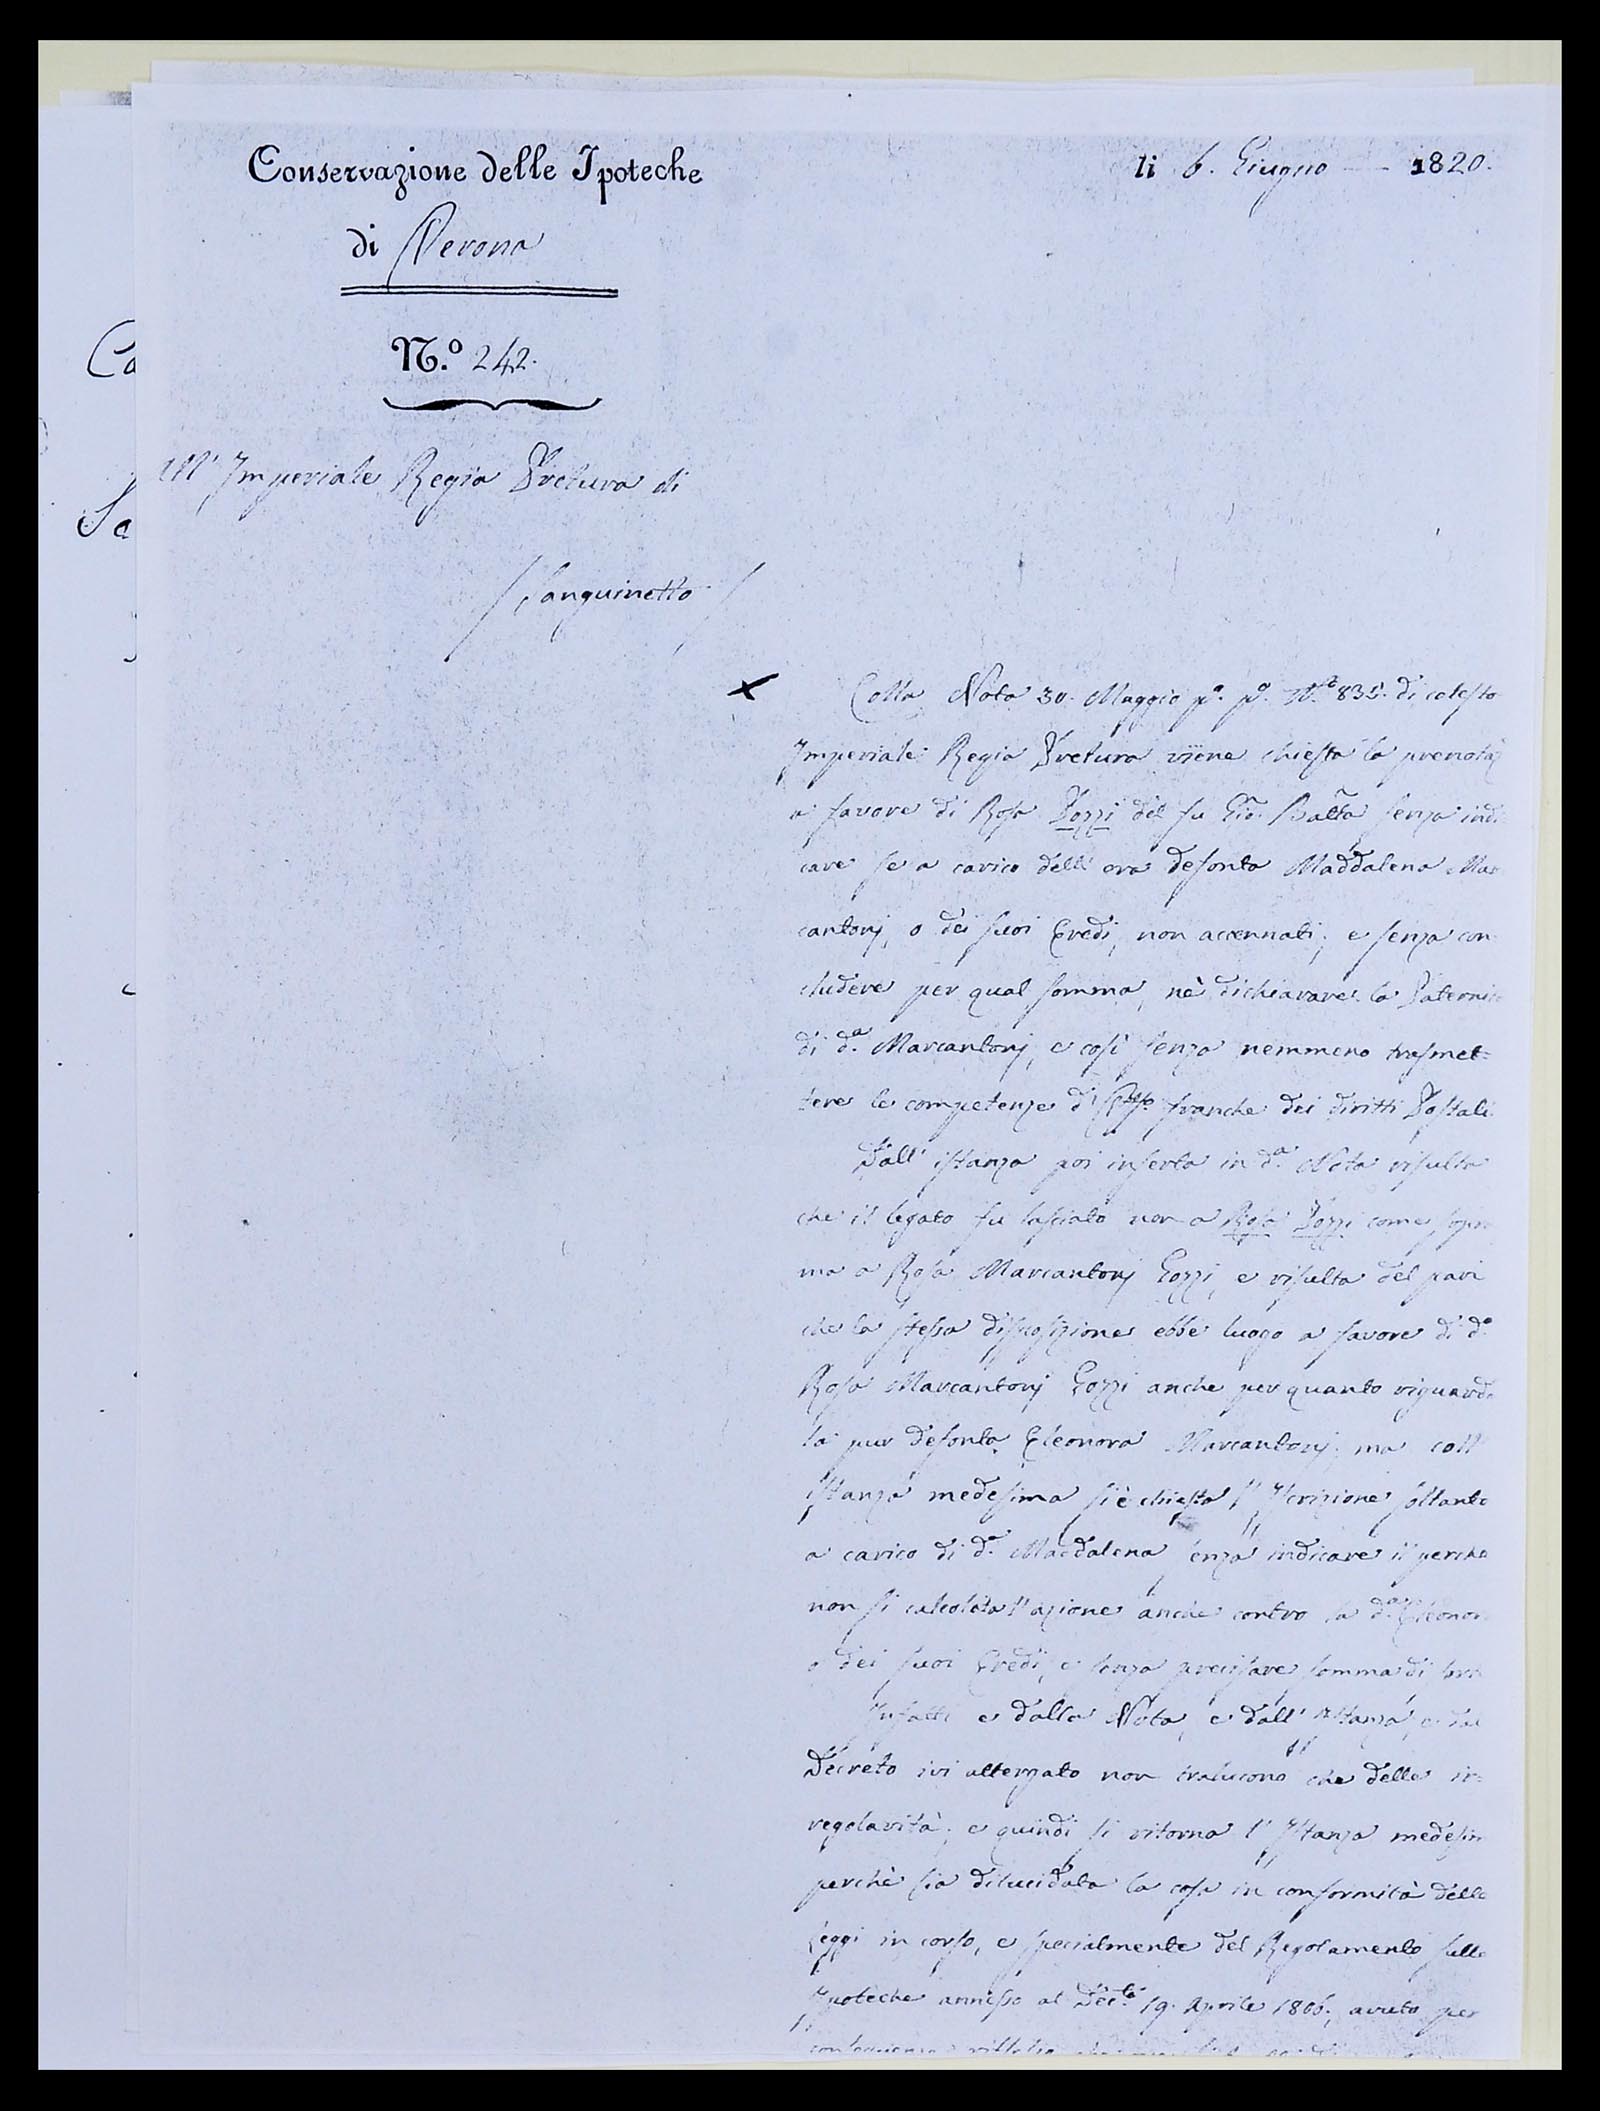 Conservazione delle Ipoteche
li 6. Giugno 1820.
di Verona
N.º 242.
All' Imperiale Regia Pretura di
Sanguinetto
Ca
Sa
Colla Nota 30. Maggio pº. pº. Nº 835. di codesta
Imperiale Regia Pretura viene chiesta la prenotaz
a favore di Rosa Pozzi del fu Gio. Batta senza indi
care se a carico dell' ora defonta Maddalena Mar
cantonj, o dei suoi Eredi, non accennati; e senza con
cludere per qual somma, nè dichiarare la Paternità
di dª. Marcantonj, e così senza nemmeno trasmet=
tere le competenze d' franche dei diritti Postali
Dall' istanza poi inserta in dª. Nota risulta
che il legato fu lasciato non a Rosa Pozzi come sopra
ma a Rosa Marcantonj Gozzi, e risulta del pari
che la stessa disposizione ebbe luogo a favore di dª
Rosa Marcantonj Gozzi anche per quanto riguarda
la pur defonta Eleonora Marcantonj; ma coll'
istanza medesima si è chiesta l' Iscrizione soltanto
a carico di dª. Maddalena senza indicare il perchè
non si calcolata l' azione anche contro la dª. Eleonor
o dei suoi Eredi, e senza precisare somma di
Infatti e dalla Nota, e dall' Istanza, e dal
Decreto ivi attergato non tralucono che delle ir=
regolarità; e quindi si ritorna l' Istanza medesim
perchè sia dilucidata la cosa in conformità delle
Leggi in corso, e specialmente del Regolamento sulle
Ipoteche annesso al Decto. 19. Aprile 1806., avuto per